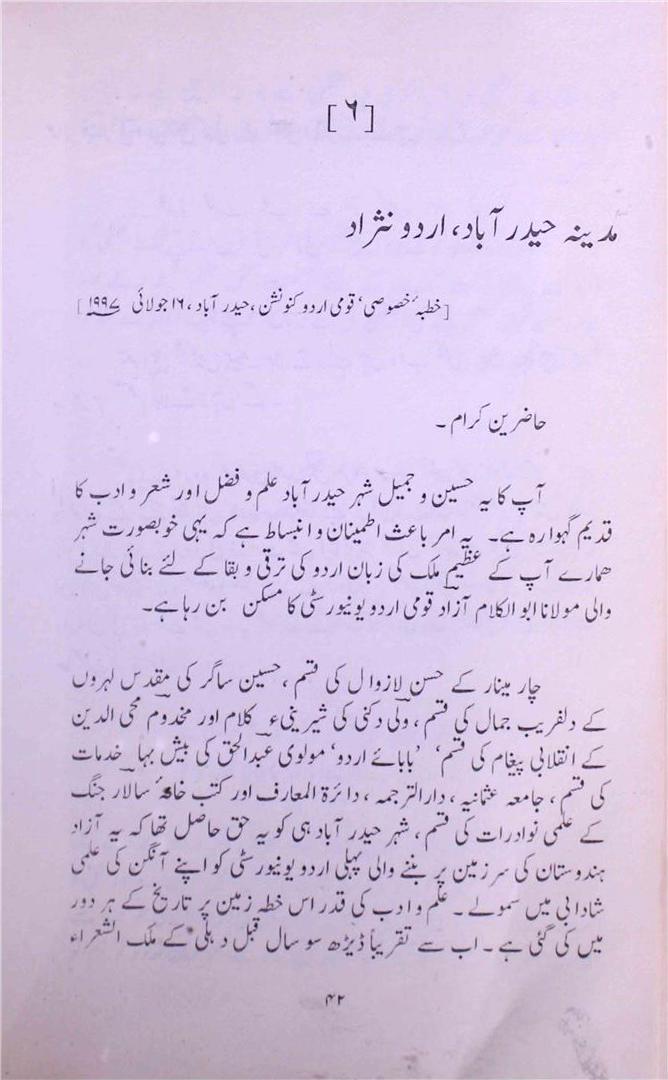 [۶]
مدینہ حیدر آباد، اردو نژاد
[خطبۂ خصوصی، قومی اردو کنونشن، حیدر آباد، ۱۶ جولائی ۱۹۹۷]
حاضرین کرام۔
آپ کا یہ حسین و جمیل شہر حیدر آباد علم و فضل اور شعر و ادب کا
قدیم گہوارہ ہے۔ یہ امر باعث اطمینان و انبساط ہے کہ یہی خوبصورت شہر
ہمارے آپ کے عظیم ملک کی زبان اردو کی ترقی و بقا کے لئے بنائی جانے
والی مولانا ابو الکلام آزاد قومی اردو یونیورسٹی کا مسکن بن رہا ہے۔
چار مینار کے حسن لازوال کی قسم، حسین ساگر کی مقدس لہروں
کے دلفریب جمال کی قسم، ولی دکنی کی شیرینیء کلام اور مخدوم محی الدین
کے انقلابی پیغام کی قسم، 'بابائے اردو' مولوی عبدالحق کی بیش بہا خدمات
کی قسم، جامعہ عثمانیہ، دارالترجمہ، دائرۃ المعارف اور کتب خانۂ سالار جنگ
کے علمی نوادرات کی قسم، شہر حیدر آباد ہی کو یہ حق حاصل تھا کہ یہ آزاد
ہندوستان کی سرزمین پر بننے والی پہلی اردو یونیورسٹی کو اپنے آنگن کی علمی
شادابی میں سمولے۔ علم و ادب کی قدر اس خطہ زمین پر تاریخ کے ہر دور
میں کی گئی ہے۔ اب سے تقریباً ڈیڑھ سو سال قبل دہلی کے ملک الشعراء
۴۲